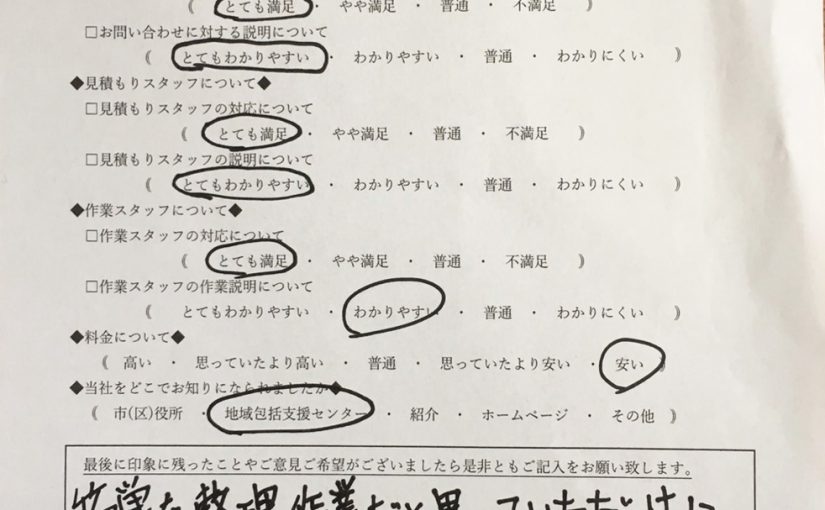 《 とても満足 ・ やや満足 ・ 普通 ・ 不満足 》
□お問い合わせに対する説明について
《 とてもわかりやすい ・ わかりやすい ・ 普通 ・ わかりにくい 》
◆見積もりスタッフについて◆
□見積もりスタッフの対応について
《 とても満足 ・ やや満足 ・ 普通 ・ 不満足 》
□見積もりスタッフの説明について
《 とてもわかりやすい ・ わかりやすい ・ 普通 ・ わかりにくい 》
◆作業スタッフについて◆
□作業スタッフの対応について
《 とても満足 ・ やや満足 ・ 普通 ・ 不満足 》
□作業スタッフの作業説明について
《 とてもわかりやすい ・ わかりやすい ・ 普通 ・ わかりにくい 》
◆料金について◆
《 高い ・ 思っていたより高い ・ 普通 ・ 思っていたより安い ・ 安い 》
◆当社をどこでお知りになられましたか◆
《 市(区)役所 ・ 地域包括支援センター ・ 紹介 ・ ホームページ ・ その他 》
最後に印象に残ったことやご意見ご希望がございましたら是非ともご記入をお願い致します。
整理作業だと思っていただけに